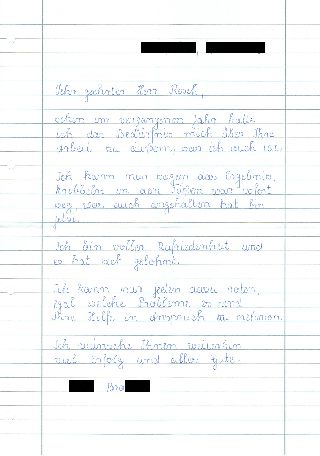 Sehr geehrter Herr Resch,
schon im vergangenen Jahr hatte
ich das Bedürfnis mich über Ihre
Arbeit zu äußern, was ich auch tat.
Ich kann nur sagen das Ergebnis,
in den Füßen war sofort
weg, was auch angehalten hat bis
jetzt.
Ich bin voller Zufriedenheit und
es hat sich gelohnt.
Ich kann nur jedem dazu raten,
egal welche Probleme es sind
Ihre Hilfe in Anspruch zu nehmen.
Ich wünsche Ihnen weiterhin
viel Erfolg und alles gute.